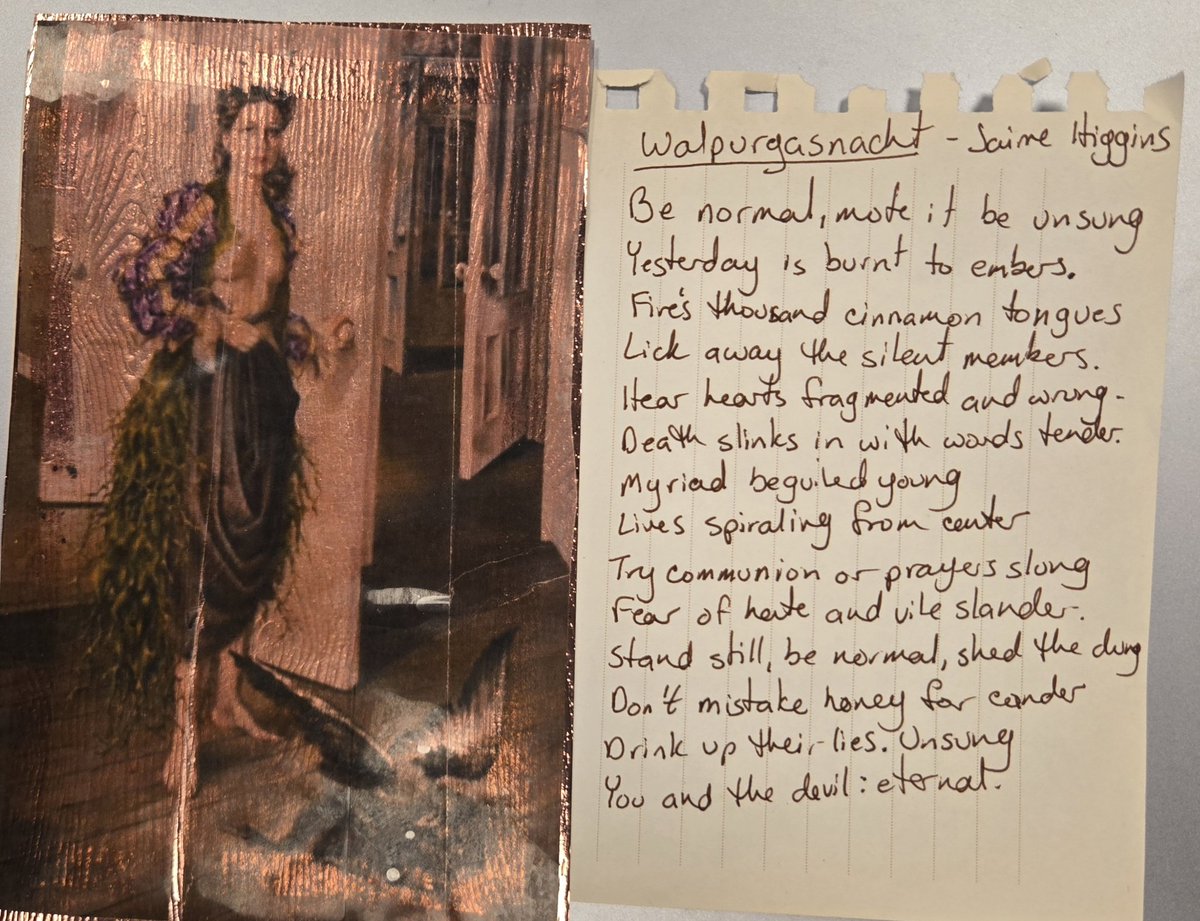 Walpurgasnacht - Jaime Higgins
Be normal, mote it be unsung
Yesterday is burnt to embers.
Fire's thousand cinnamon tongues
Lick away the silent members.
Hear hearts fragmented and wrong-
Death slinks in with words tender.
Myriad beguiled young
Lives spiraling from center
Try communion or prayers slung
Fear of hate and vile slander.
Stand still, be normal, shed the dung
Don't mistake honey for candor
Drink up their lies. Unsung
You and the devil: eternal.